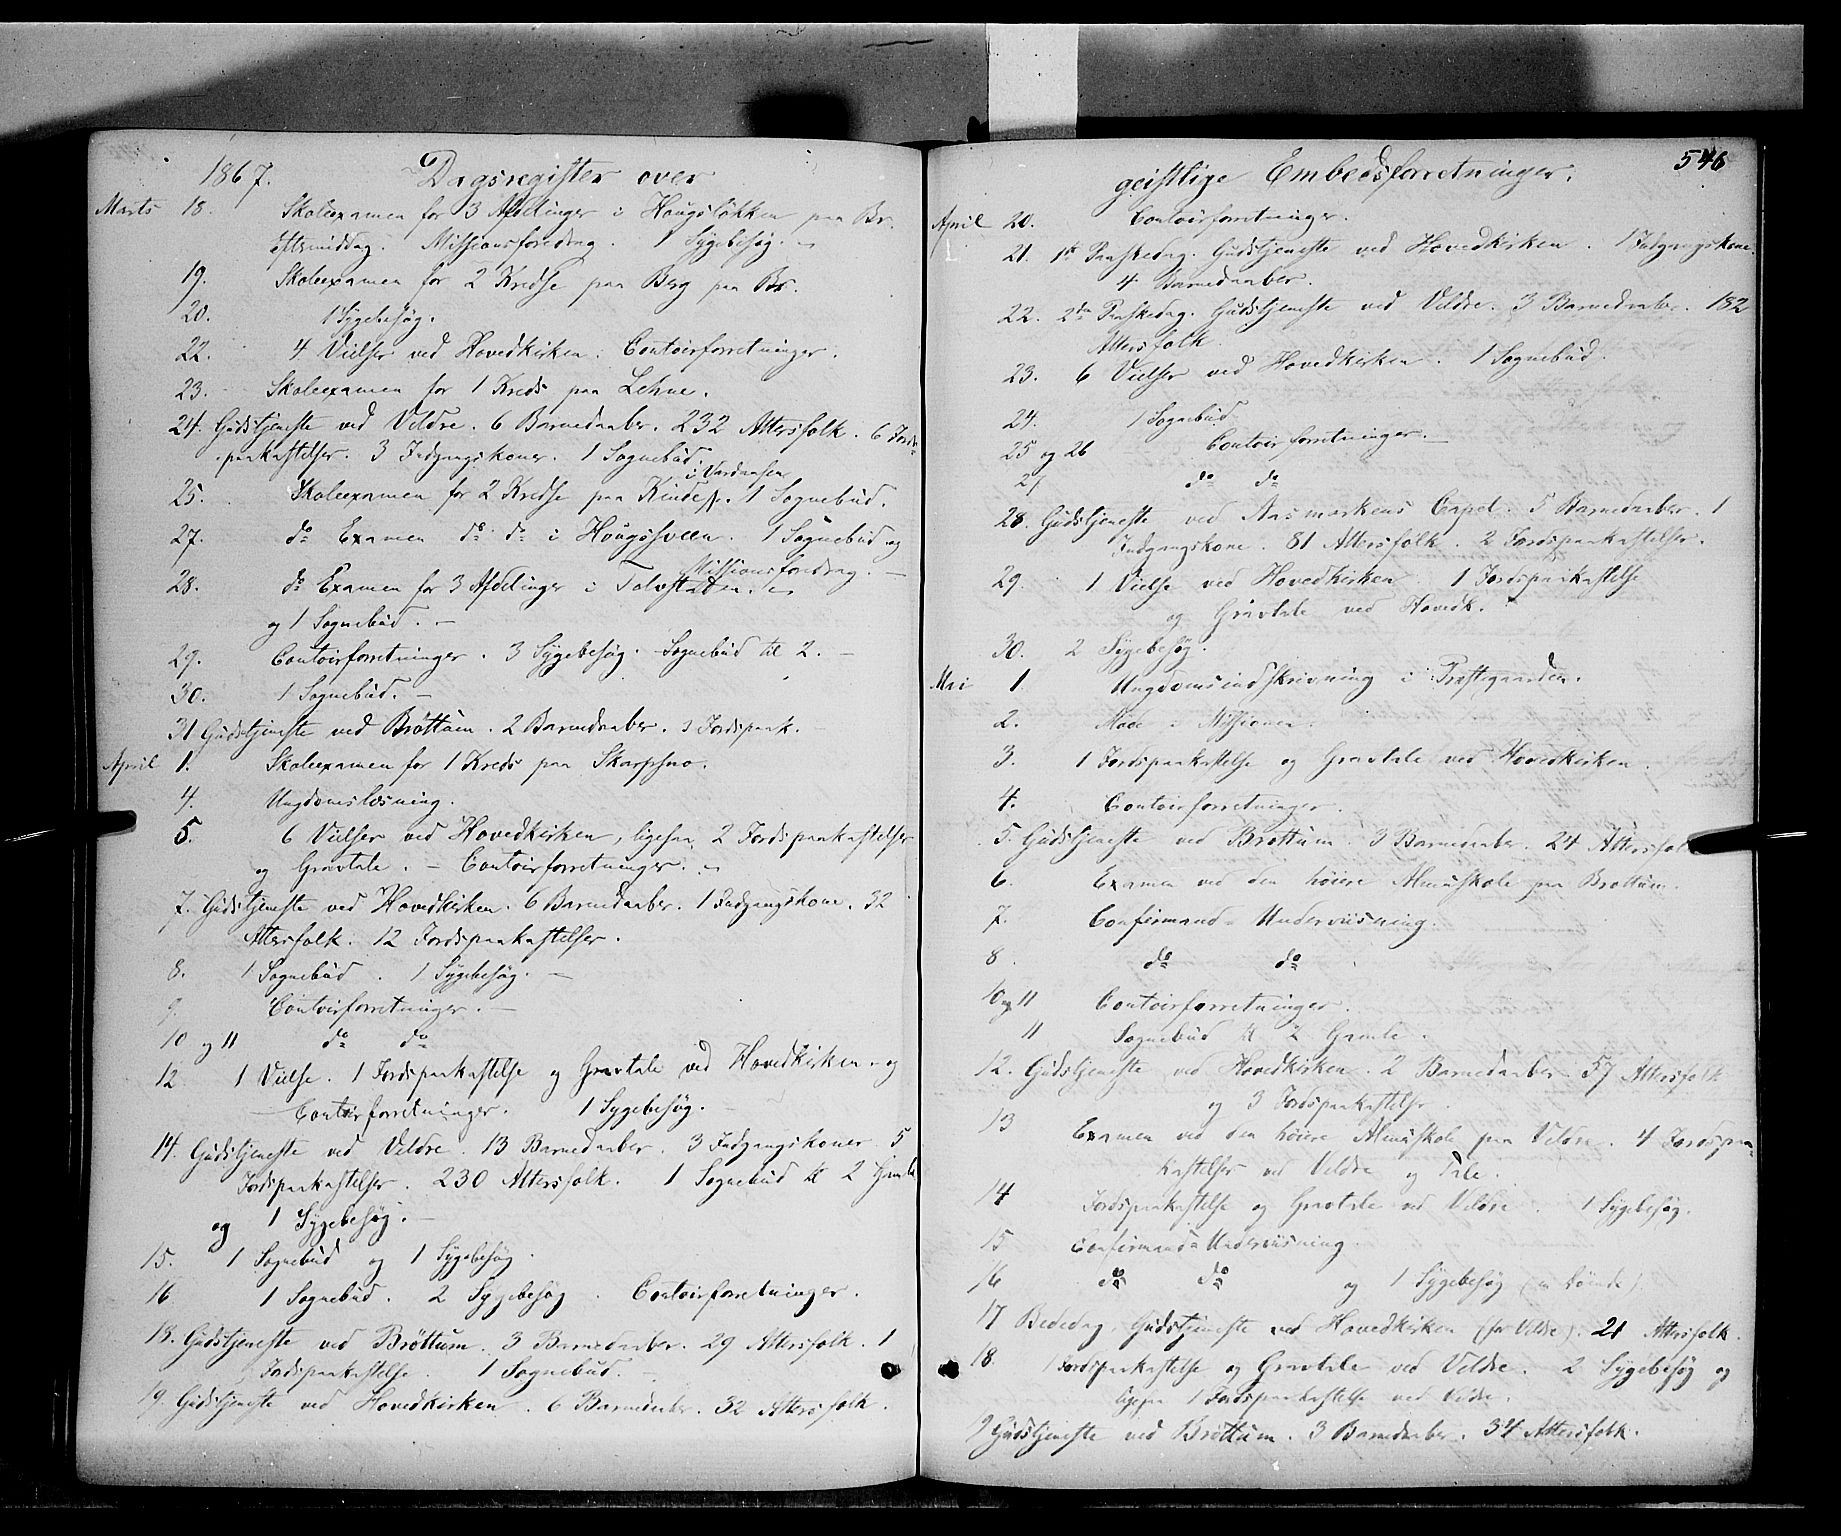 1867. Dagsregister over
Marts 18. Skoleexamen for 3 Afdelinger i Hougsløkken paa Br.
ettermiddag. Missionsforedrag. 1 Sygebesøg. –
19. Skoleexamen for 2 Kredse paa Berg paa Br.
20. 1 Sygebesøg.
22. 4 Vielser ved Hovedkirken. Contoirforretninger.
23. Skoleexamen for 1 Kreds paa Lehne.
24. Gudstjeneste ved Veldre. 6 Barnedaaber. 232 Altersfolk. 6 Jords-
paakastelser. 3 Indgangskoner. 1 Sognebud
25. Skoleexamen for 2 Kredse paa 1 Sognebud.
27. do Examen do do i Hougssveen. 1 Sognebud og
Missionsforedrag. –
28. do Examen for 3 Afdelinger i Tolvstaden. –
og 1 Sognebud. –
29. Contoirforretninger. 3 Sygebesøg. Sognebud til 2. –
30. 1 Sognebud. –
31 Gudstjeneste ved Brøttum. 2 Barnedaaber. 3 Jordspaak.
April 1. Skoleexamen for 1 Kreds paa Skarpsno.
4. Ungdomslæsning.
5. 6 Vielser ved Hovedkirken, ligesaa 2 Jordspaakastelser
og Gravtale. – Contoirforretninger. –
7. Gudstjeneste ved Hovedkirken. 6 Barnedaaber. 1 Indgangskone. 32
Altersfolk. 12 Jordspaakastelser.
8. 1 Sognebud. 1 Sygebesøg. –
9. Contoirforretninger. –
10 og 11 do do
12 1 Vielse. 1 Jordspaakastelse og Gravtale ved Hovedkirken – og
Contoirforretninger. 1 Sygebesøg.
14. Gudstjeneste ved Veldre. 13 Barnedaaber. 3 Indgangskoner 5
Jordspaakastelser. 230 Altersfolk. 1 Sognebud til 2 Gamle
og 1 Sygebesøg. –
15. 1 Sognebud og 1 Sygebesøg.
16 1 Sognebud. 2 Sygebesøg. Contoirforretninger.
18. Gudstjeneste ved Brøttum. 3 Barnedaaber. 29 Altersfolk. 1
Jordspaakastelse. 1 Sognebud. –
19. Gudstjeneste ved Hovedkirken. 6 Barnedaaber. 32 Altersfolk.
geistlige Embedsforretninger. 546
April 20. Contoirforretninger.
21. 1ste Paaskedag. Gudstjeneste ved Hovedkirken. 1 Indgangskone.
4 Barnedaaber.
22. 2den Paaskedag. Gudstjeneste ved Veldre. 3 Barnedaaber. 182
Altersfolk.
23. 6 Vielser ved Hovedkirken. 1 Sognebud.
24. 1 Sognebud
25 og 26 Contoirforretninger. –
27 do do
28. Gudstjeneste ved Aasmarkens Capel. 5 Barnedaaber. 1
Indgangskone. 81 Altersfolk. 2 Jordspaakastelser.
29. 1 Vielse ved Hovedkirken. 1 Jordspaakastelse
og Gravtale ved Hovedk.
30. 2 Sygebesøg.
Mai 1. Ungdomsindskrivning i Præstegaarden.
2. Møde i Missionen.
3. 1 Jordspaakastelse og Gravtale ved Hovedkirken.
4. Contoirforretninger.
5. Gudstjeneste ved Brøttum. 3 Barnedaaber. 24 Altersfolk
6. Examen ved den høiere Almuskole paa Brøttum.
7. Confirmand-Underviisning.
8. do do
10 og 11 Contoirforretninger.
11 Sognebud til 2 Gamle.
12. Gudstjeneste ved Hovedkirken. 2 Barnedaaber. 57 Altersfolk
og 3 Jordspaakastelser.
13 Examen ved den høiere Almuskole paa Veldre. 4 Jordspaa-
kastelser ved Veldre og Tale.
14 Jordspaakastelse og Gravtale ved Veldre. 1 Sygebesøg.
15 Confirmand-Underviisning.
16 do do og 1 Sygebesøg
17 Bededag. Gudstjeneste ved Hovedkirken (for Veldre). 21 Altersfolk.
18. 1 Jordspaakastelse og Gravtale ved Veldre. 2 Sygebesøg og
ligesaa 1 Jordspaakastelse ved Veldre.
9 Gudstjeneste ved Brøttum. 3 Barnedaaber. 34 Altersfolk.